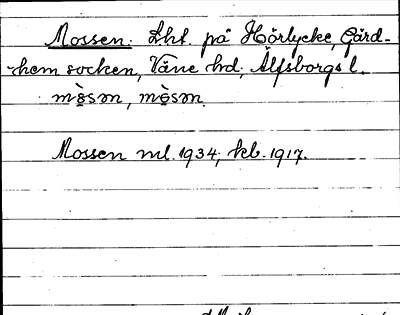 Mossen. Lht. på Hörlycke, Gärd-
hem socken, Väne hd, Älfsborgs l.
mòsən, mòsən.
Mossen ml. 1934; kb. 1917.